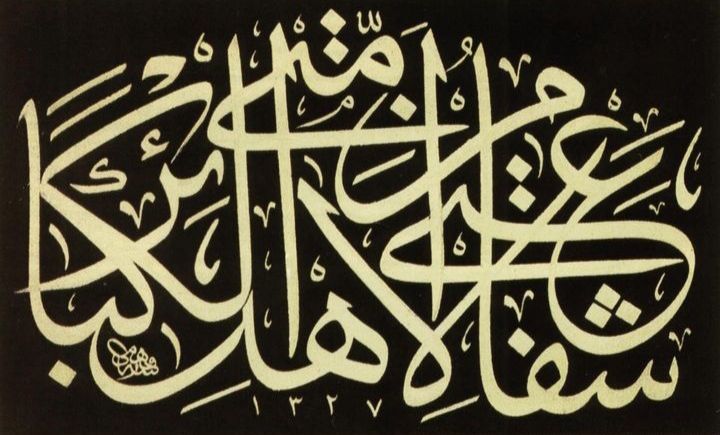 شفاعتي لأهل الكبائر من أمتي
١٣٢٧